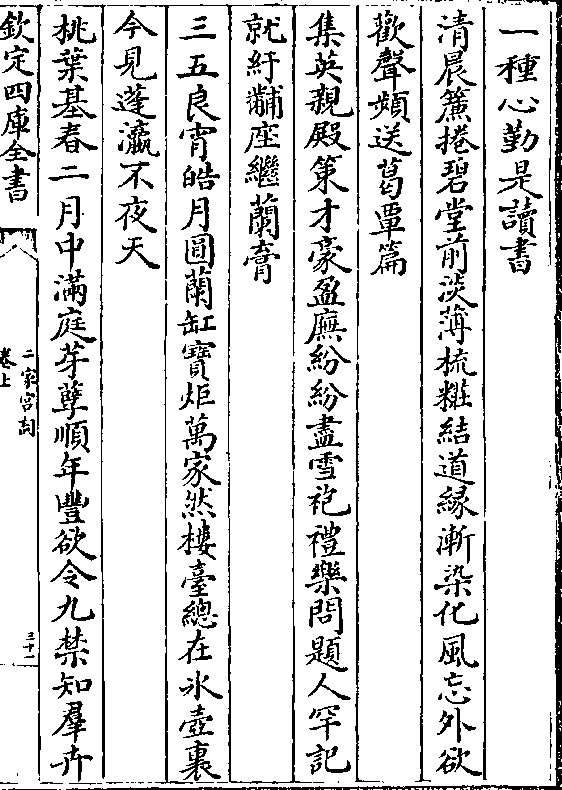 一種心勤是讀書
清晨簾捲碧堂前淡薄梳糚結道緣漸染化風忘外欲
歡聲頻送葛覃篇
集英親殿策才豪盈廡紛紛盡雪袍禮樂問題人罕記
就紆黼座繼蘭膏
三五良宵皓月圓蘭缸寶炬萬家然樓臺總在氷壺裏
今見蓬瀛不夜天
桃葉基春二月中滿庭芽孽順年豐欲令九禁知羣卉
欽定四庫全書
二家宮詞
卷上
三十一